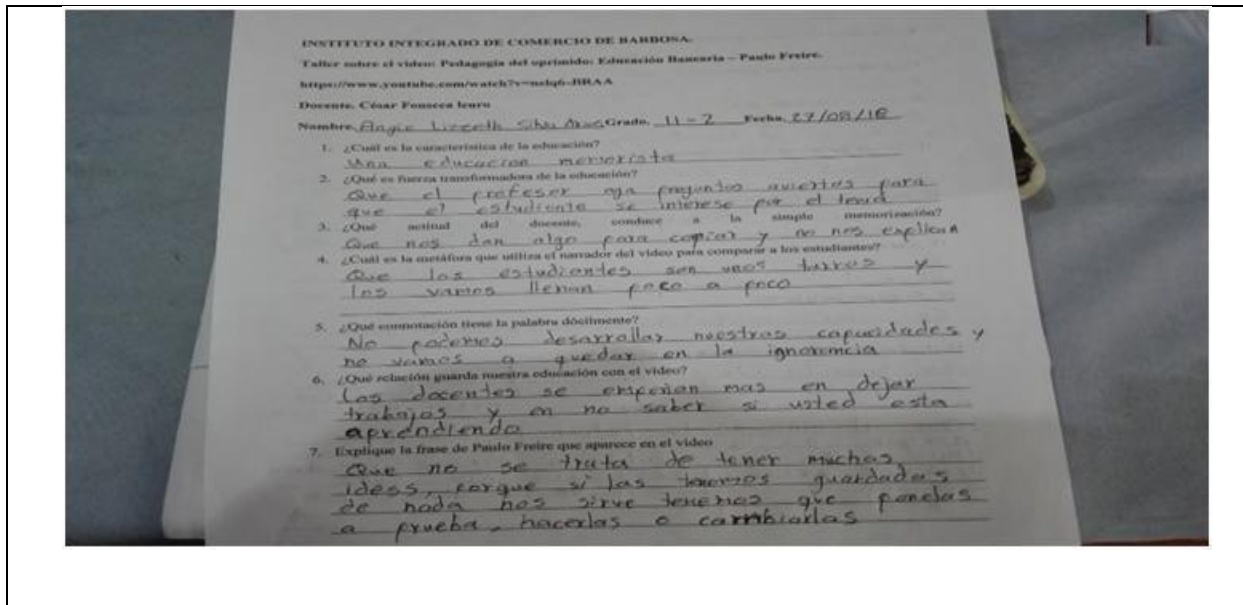 INSTITUTO INTEGRADO DE COMERCIO DE BARBOSA.
Taller sobre el video: Pedagogía del oprimido: Educación Bancaria – Paulo Freire.
https://www.youtube.com/watch?v=
Docente. César Fonseca
Nombre. Angie Lizeeth Silva Grado. 11-2 Fecha. 27/08/18
1. ¿Cuál es la característica de la educación?
Una educacion memorista
2. ¿Qué es fuerza transformadora de la educación?
Que el profesor aga preguntas aviertas para
que el estudiante se interese por el tema
3. ¿Qué actitud del docente, conduce a la simple memorización?
Que nos dan algo para copiar y no nos explican
4. ¿Cuál es la metáfora que utiliza el narrador del video para comparar a los estudiantes?
Que los estudiantes son unos tarros y
los vamos llenan poco a poco
5. ¿Qué connotación tiene la palabra dócilmente?
No podemos desarrollar nuestras capacidades y
no vamos a quedar en la ignorancia
6. ¿Qué relación guarda nuestra educación con el video?
Los docentes se empeñan mas en dejar
trabajos y en no saber si usted esta
aprendiendo
7. Explique la frase de Paulo Freire que aparece en el video
Que no se trata de tener muchas
ideas, porque si las tenemos guardadas
de nada nos sirve tenemos que ponelas
a prueba, hacerlas o cambiarlas